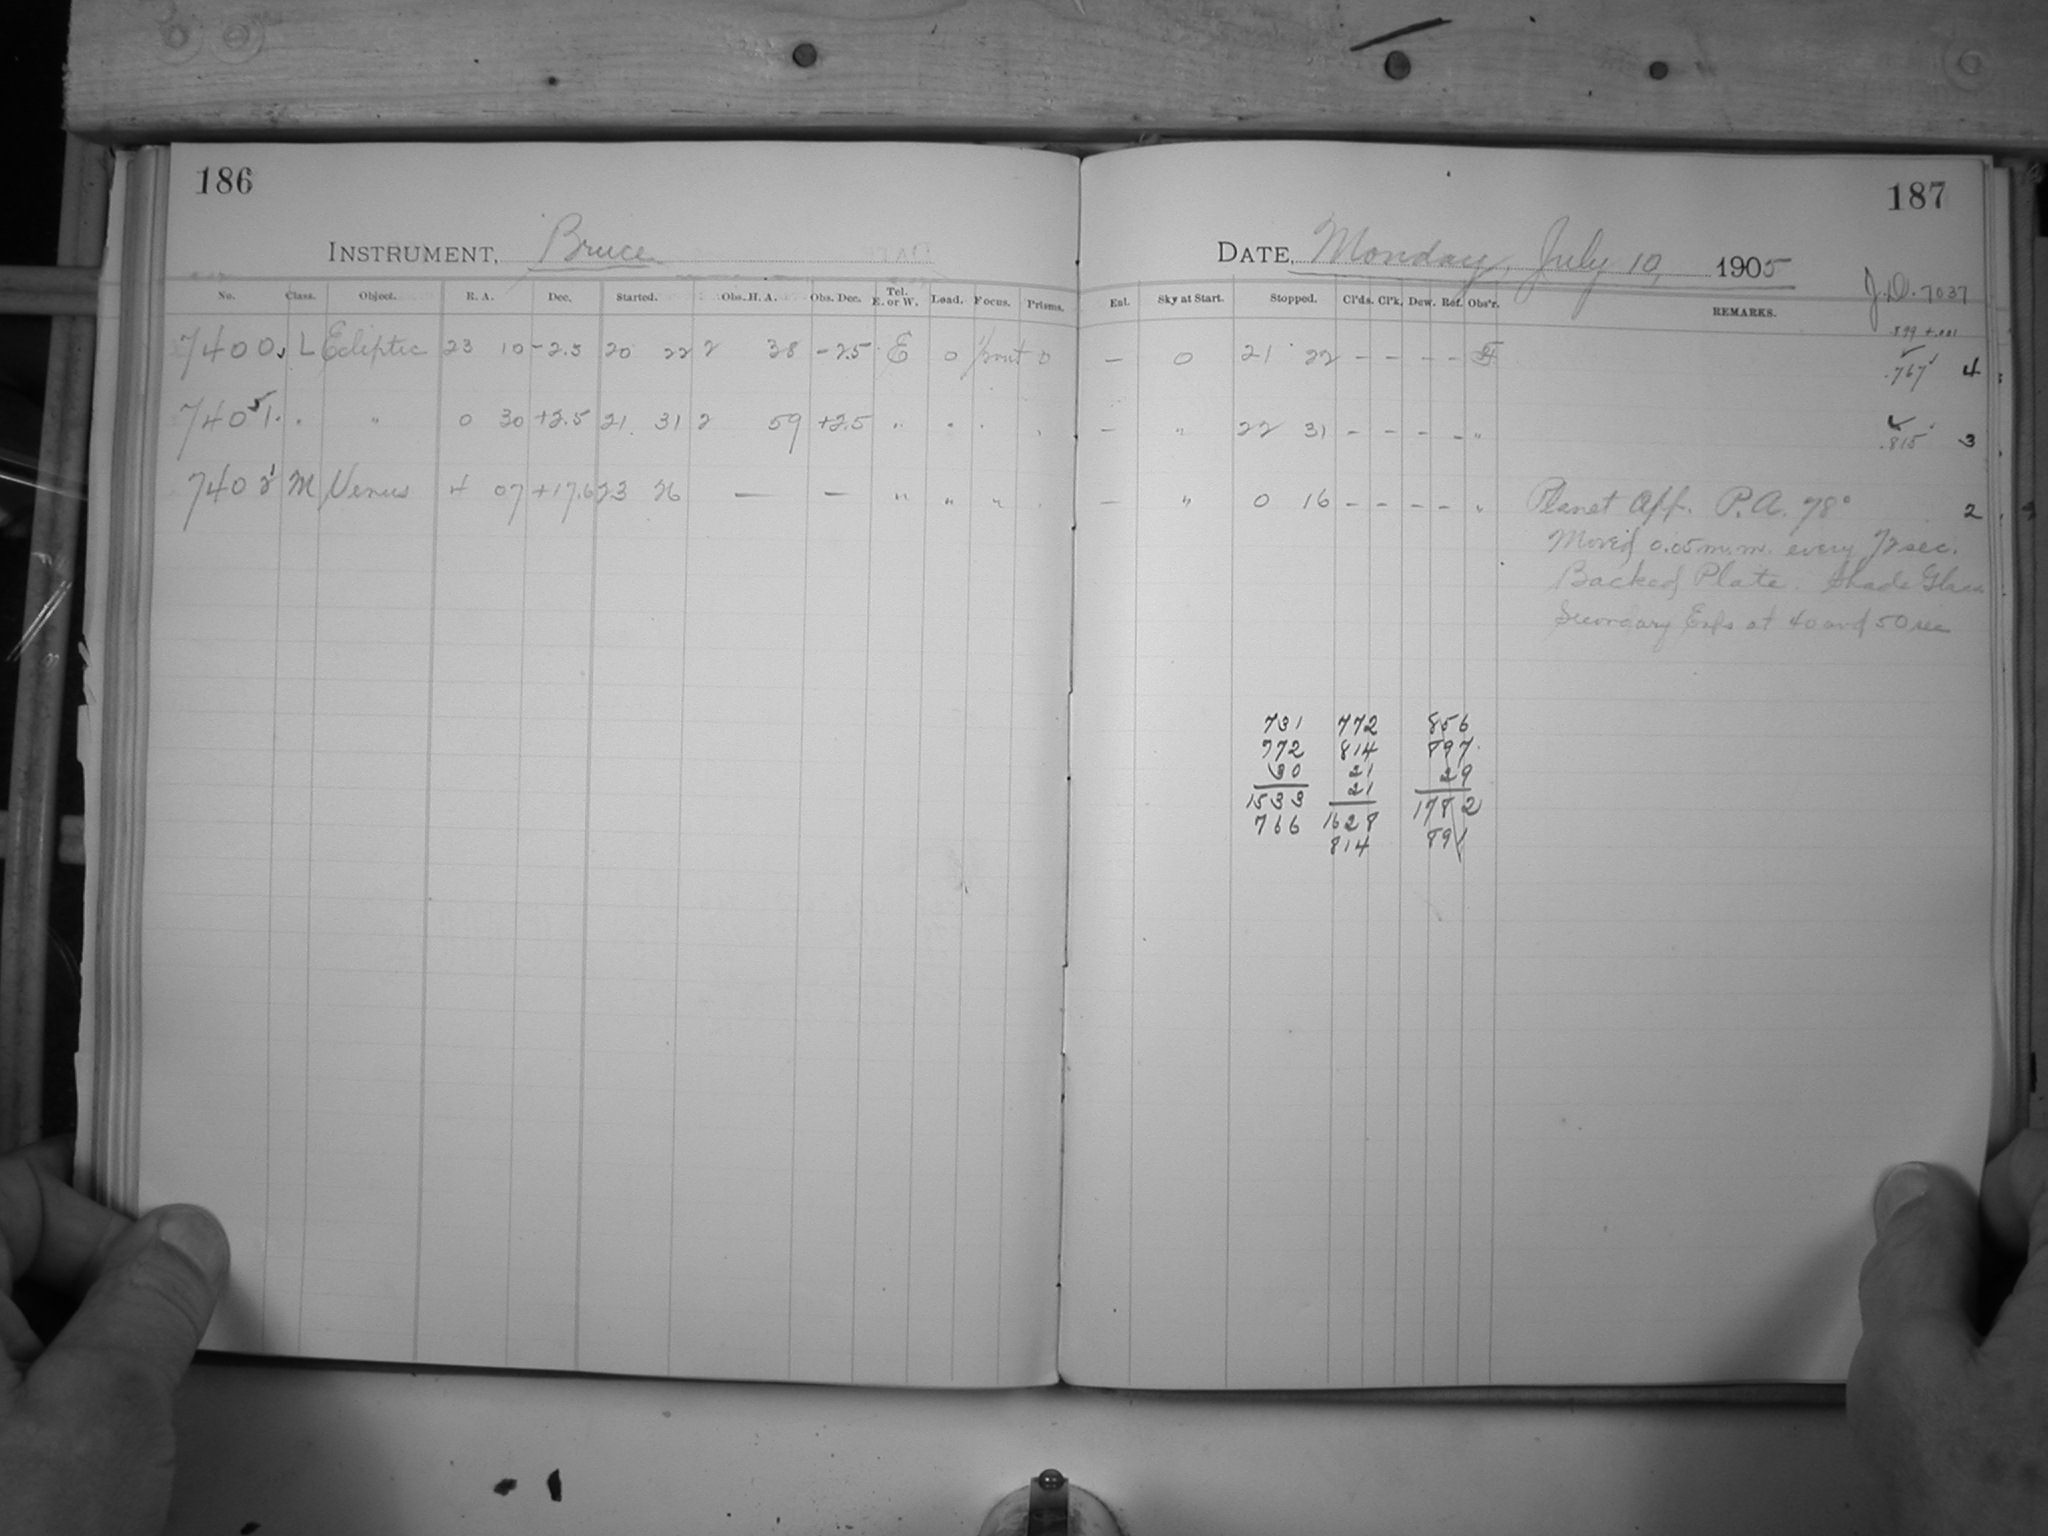 186
187
INSTRUMENT, Bruce
DATE, Monday, July 10, 1905
J.D. 7037
No. Class. Object. R. A. Dec. Started. Obs. H. A. Obs. Dec. Tel. E. or W. Load. Focus. Prisms.
Eal. Sky at Start. Stopped. Cl'ds. Cl'k. Dew. Ref. Obs'r. REMARKS.
.899 + .001
7400 L Ecliptic 23 10 -2.5 20 22 2 38 -2.5 E 0 front 0 — 0 21 22 – – – – .767 4
7401 . " 0 30 +2.5 21 31 2 59 +2.5 " " " " — " 22 31 – – – – " .815 3
7402 M Venus 4 07 +17.6 23 26 — — " " " " — " 0 16 – – – – " Planet App. P.A. 78° 2
Moved 0.05 m.m. every 72 sec.
Backed Plate. Shade Glass
Secondary Exps at 40 and 50 sec
731 772 856
772 814 897
30 21 29
1533 21 1782
766 1628 891
814